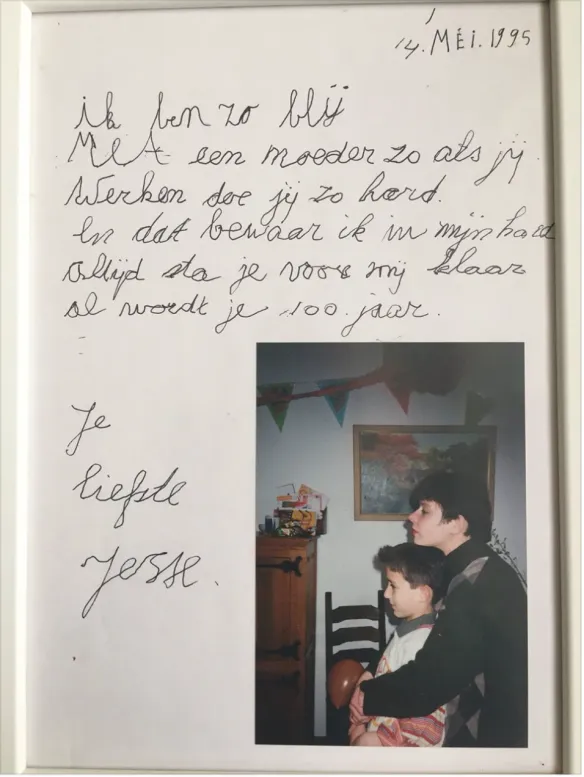 14. MEI. 1995
ik ben zo blij
MEt een moeder zo als jij
Werken doe jij zo hard.
En dat bewaar ik in mijn hard
altijd sta je voor mij klaar
al wordt je 100 jaar.
Je
liefste
Jesse.